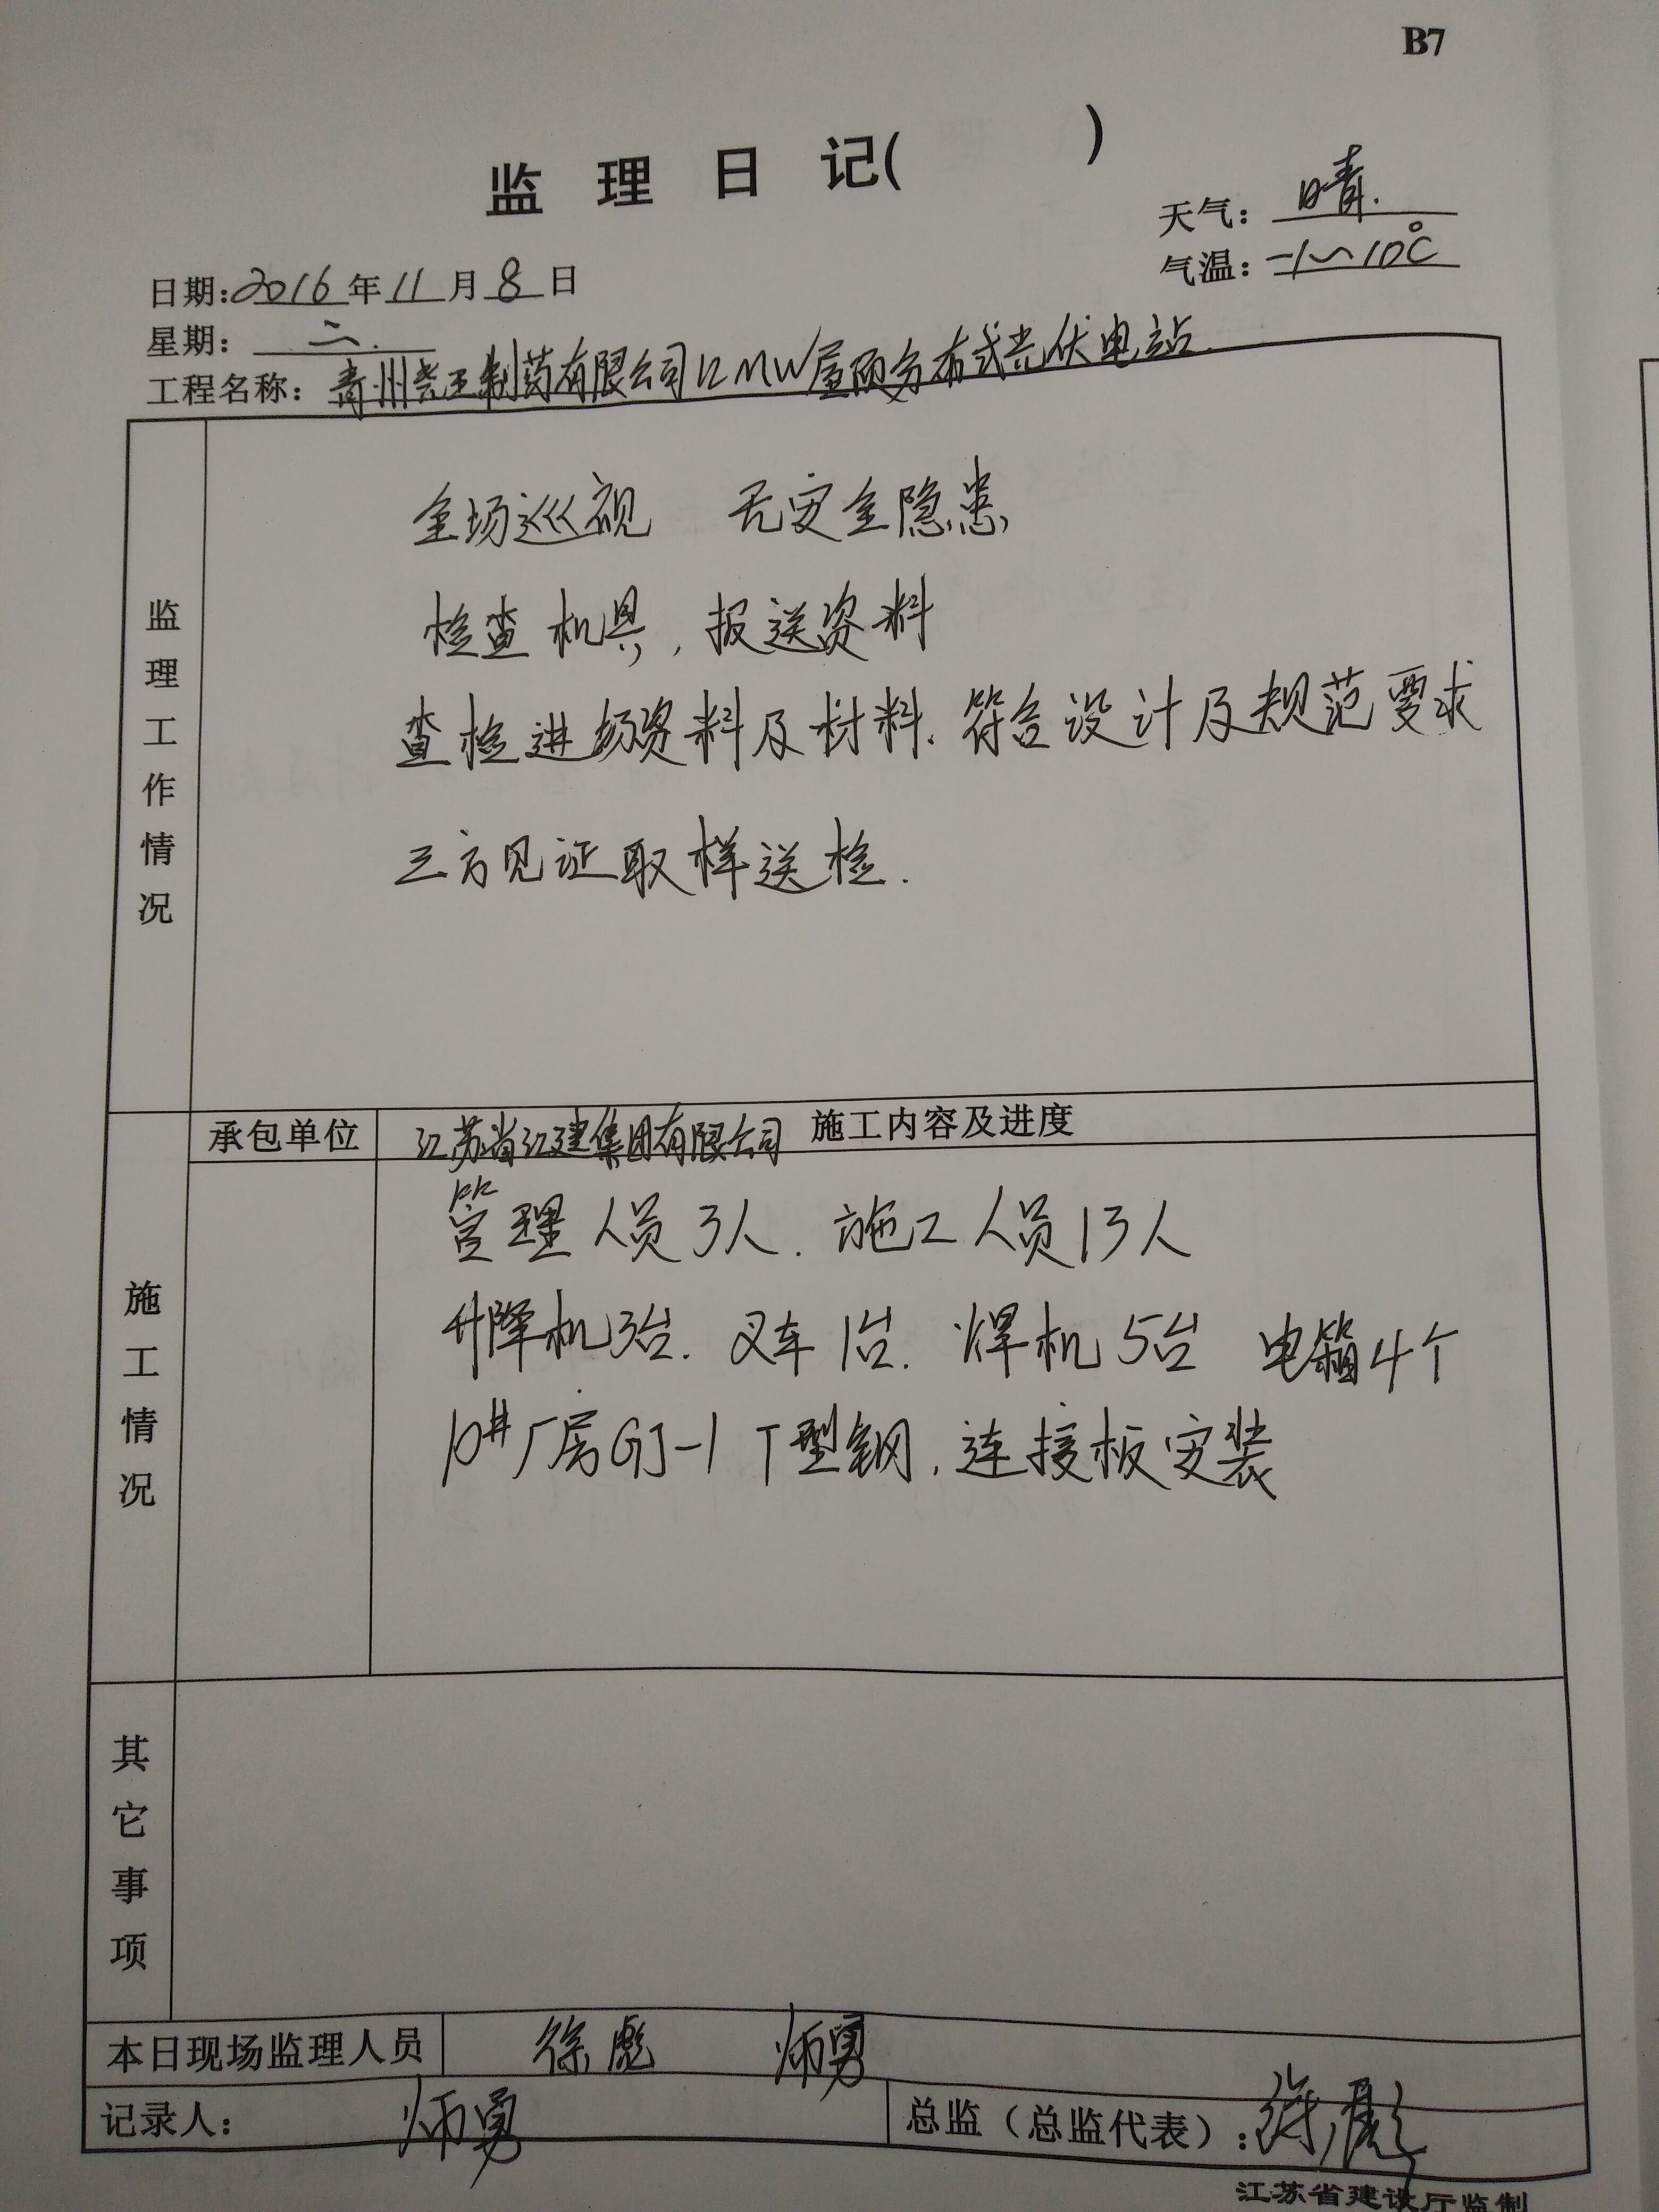 B7
监 理 日 记(        )
天气: 晴.
气温: -1~10℃
日期: 2016 年 11 月 8 日
星期: 二.
工程名称: 青州尧王制药有限公司12MW屋顶分布式光伏电站.
监理工作情况
全场巡视 无安全隐患
检查机具, 报送资料
查检进场资料及材料. 符合设计及规范要求
三方见证取样送检.
承包单位 江苏省江建集团有限公司 施工内容及进度
施工情况
管理人员3人. 施工人员13人
升降机3台. 叉车1台. 焊机5台 电箱4个
10#厂房GJ-1 T型钢, 连接板安装
其它事项
本日现场监理人员 徐彪 炳勇
记录人: 炳勇 总监（总监代表）: 徐彪
江苏省建设厅监制